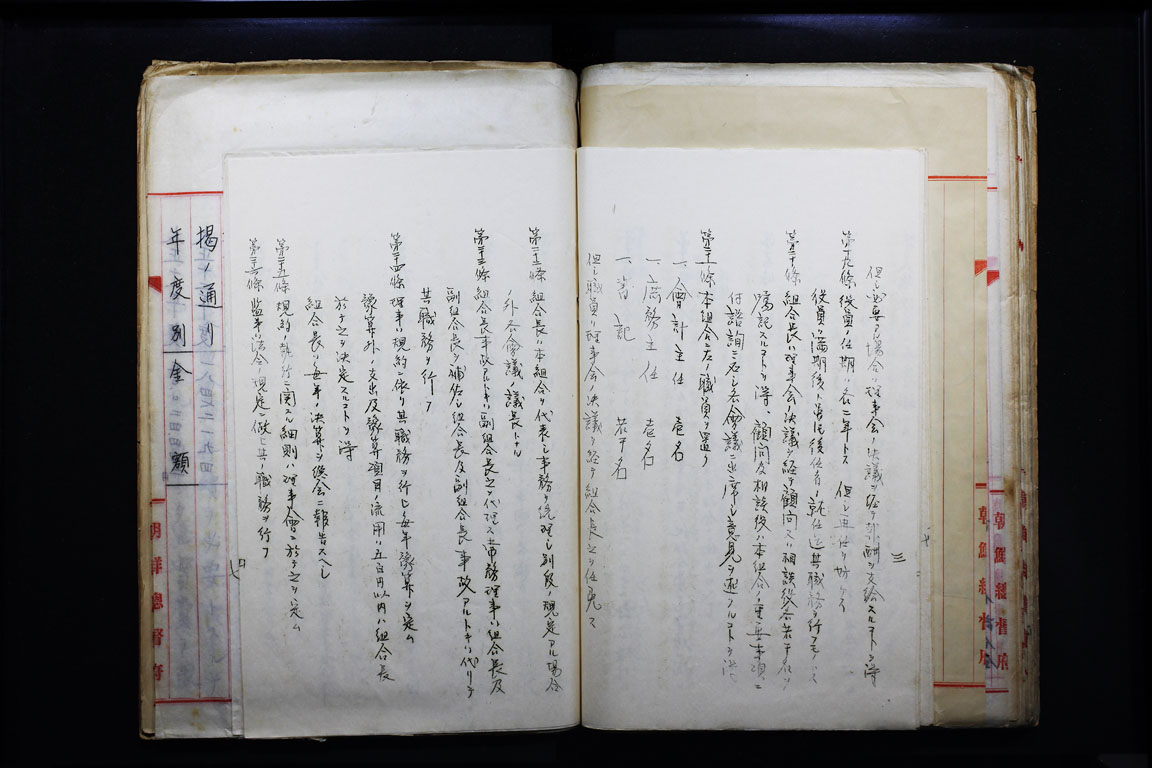 但シ必要ナル場合ハ理事会ノ決議ヲ経テ報酬ヲ支給スルコトヲ得
第十九條 役員ノ任期ハ各二年トス 但シ再任ヲ妨ケス
役員ハ満期後ト雖後任者ノ就任迄其職務ヲ行フモノトス
第二十條 組合長ハ理事会ノ決議ヲ経テ顧問又ハ相談役各若干名ヲ
嘱託スルコトヲ得、顧問及相談役ハ本組合ノ重要事項ニ
付諮詢ニ応シ各會議ニ出席シ意見ヲ述フルコトヲ得
第二十一條 本組合ニ左ノ職員ヲ置ク
一、會計主任 壱名
一、庶務主任 壱名
一、書記 若干名
但シ職員ハ理事会ノ決議ヲ経テ組合長之ヲ任免ス
三
第二十二條 組合長ハ本組合ヲ代表シ事務ヲ統理シ別段ノ規定アル場合
ノ外各會議ノ議長トナル
第二十三條 組合長事故アルトキハ副組合長之ヲ代理ス 常務理事ハ組合長及
副組合長ヲ補佐シ組合長及副組合長事故アルトキハ代リテ
其職務ヲ行フ
第二十四條 理事ハ規約ニ依リ其職務ヲ行ヒ毎年豫算ヲ定ム
豫算外ノ支出及豫算項目ノ流用ハ五百円以内ハ組合長
於テ之ヲ決定スルコトヲ得
組合長ハ毎年ノ決算ヲ総会ニ報告スヘシ
第二十五條 規約ノ執行ニ関スル細則ハ理事會ニ於テ之ヲ定ム
第二十六條 監事ハ法令ノ規定ニ倣ヒ其ノ職務ヲ行フ
四
揭ノ通リ
年度別金額
朝鮮總督府
朝鮮總督府